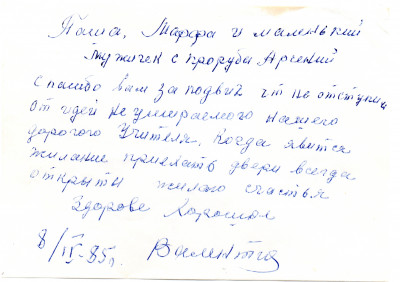 Паша, Марфа и маленький
мужичек с прорубa Арсений
спасибо вам за подвиг чт не отступил
от идей неумираемого нашего
дорогого Учителя. Когда явится
жилание приехать двери всегда
открыты жилаю счастья
Здорове Хорошое
8/IV-85г. Валентина